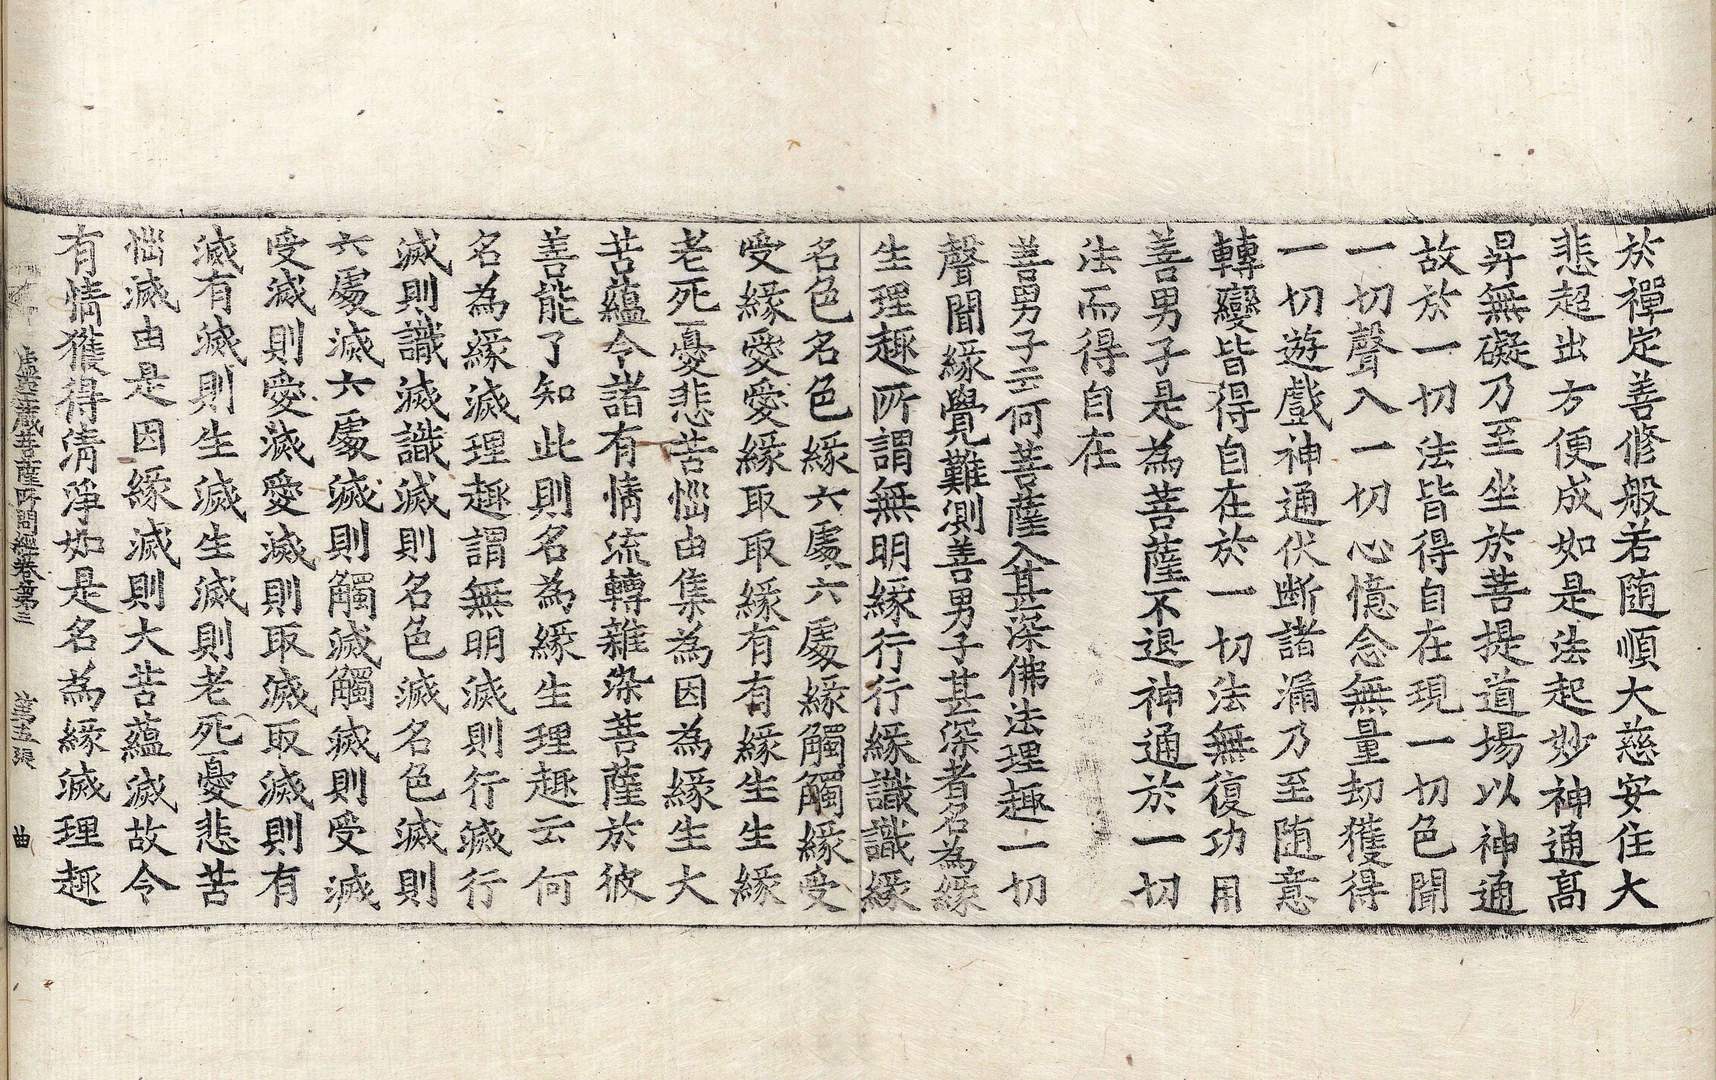 於禪定善修般若随順大慈安住大
悲超出方便成如是法起妙神通高
昇無礙乃至坐於菩提道場以神通
故於一切法皆得自在現一切色聞
一切聲入一切心憶念無量劫獲得
一切遊戲神通伏断諸漏乃至随意
轉變皆得自在於一切法無復功用
善男子是為菩薩不退神通於一切
法而得自在
善男子云何菩薩入甚深佛法理趣一切
聲聞緣覺難測善男子甚深者名為緣
生理趣所謂無明緣行行緣識識緣
名色名色緣六處六處緣觸觸緣受
受緣愛愛緣取取緣有有緣生生緣
老死憂悲苦惱由集為因為緣生大
苦蘊令諸有情流轉雜染菩薩於彼
善能了知此則名為緣生理趣云何
名為緣滅理趣謂無明滅則行滅行
滅則識滅識滅則名色滅名色滅則
六處滅六處滅則觸滅觸滅則受滅
受滅則愛滅愛滅則取滅取滅則有
滅有滅則生滅生滅則老死憂悲苦
惱滅由是因緣滅則大苦蘊滅故令
有情獲得清淨如是名為緣滅理趣
虛空藏菩薩所問經卷第三 第五張 曲